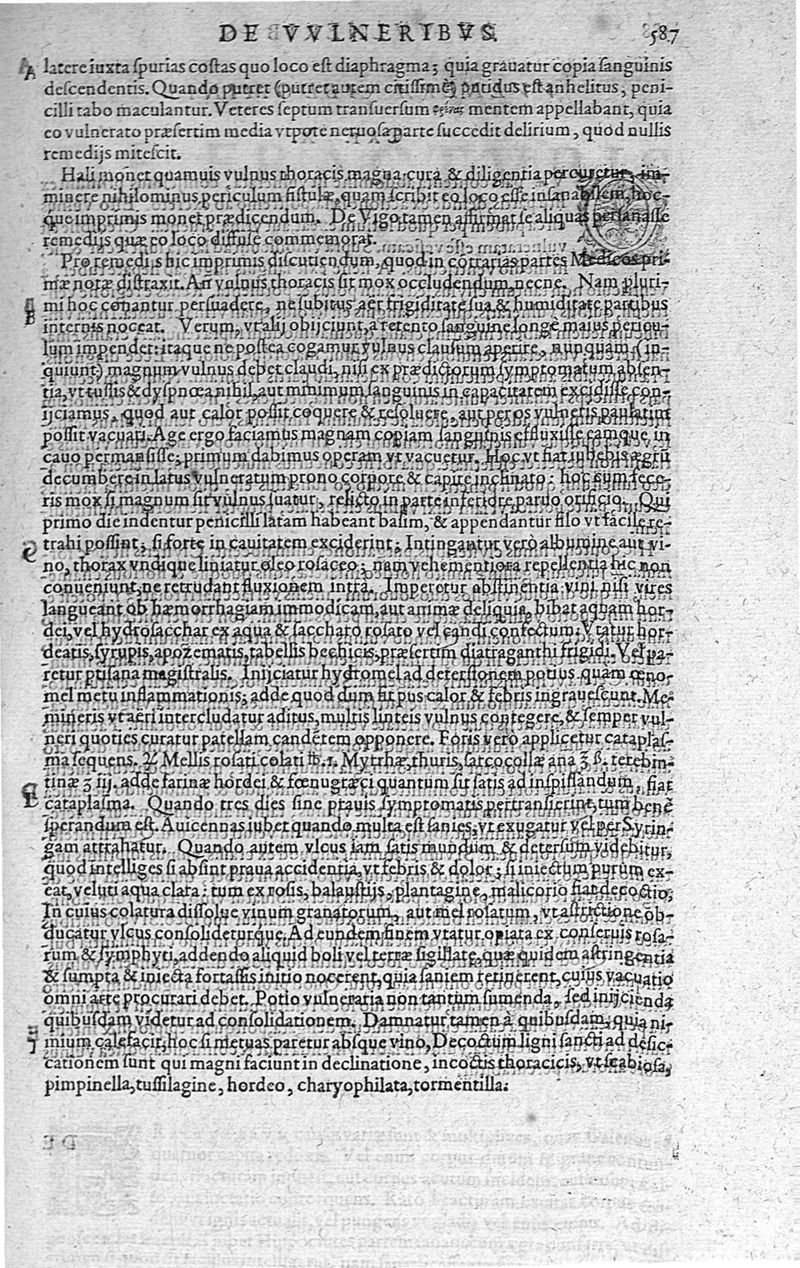 DE VVLNERIBVS. 587
A latere iuxta spurias costas quo loco est diaphragma; quia grauatur copia sanguinis
descendentis. Quando putret (putret autem citissimè) putidus est anhelitus, peni-
cilli tabo maculantur. Veteres septum transuersum mentem appellabant, quia
eo vulnerato præsertim media vtpote neruosa parte succedit delirium, quod nullis
remedijs mitescit.
Hali monet quamuis vulnus thoracis magna cura & diligentia percuretur, im-
minere nihilominus periculum fistulæ, quam scribit eo loco esse insanabilem, hoc-
que imprimis monet prædicendum. De Vigo tamen affirmat se aliquas persanasse
remedijs quæ eo loco diffuse commemorat.
Pro remedijs hic imprimis discutiendum, quod in cõtrarias partes Medicos pri-
mæ notæ distraxit. An vulnus thoracis sit mox occludendum, necne. Nam pluri-
B mi hoc conantur persuadere, ne subitus aer frigiditate sua & humiditate partibus
internis noceat. Verum, vt alij obijciunt, a retento sanguine longè maius pericu-
lum impendet: itaque ne postea cogamur vulnus clausum aperire, nunquam (in-
quiunt) magnum vulnus debet claudi, nisi ex prædictorum symptomatum absen-
tia, vt tussis & dyspnœa nihil, aut minimum sanguinis in capacitatem excidisse con-
ijciamus, quod aut calor possit coquere & resoluere, aut per os vulneris paulatim
possit vacuari. Age ergo faciamus magnam copiam sanguinis effluxisse eamque in
cauo permansisse; primum dabimus operam vt vacuetur. Hoc vt fiat iubebis ægrũ
decumbere in latus vulneratum prono corpore & capite inclinato: hoc sum fece-
ris mox si magnum sit vulnus suatur, relicto in parte inferiore paruo orificio. Qui
primo die indentur penicilli latam habeant basim, & appendantur filo vt facile re-
C trahi possint; si forte in cauitatem exciderint: Intingantur verò albumine aut vi-
no, thorax vndique liniatur oleo rosaceo; nam vehementiora repellentia hîc non
conueniunt, ne retrudant fluxionem intrà. Imperetur abstinentia vini nisi vires
langueant ob hæmorrhagiam immodicam, aut animæ deliquia, bibat aquam hor-
dei, vel hydrosacchar ex aqua & saccharo rosato vel candi confectum: Vtatur hor-
deatis, syrupis, apozematis, tabellis bechicis, præsertim diatraganthi frigidi. Vel pa-
retur ptisana magistralis. Inijciatur hydromel ad detersionem potius quam œno-
mel metu inflammationis; adde quod dum fit pus calor & febris ingrauescunt. Me-
mineris vt aëri intercludatur aditus, multis linteis vulnus contegere, & semper vul-
neri quoties curatur patellam candẽtem opponere. Foris verò applicetur cataplas-
ma sequens. ℞ Mellis rosati colati ℔. 1. Myrrhæ, thuris, sarcocollæ ana ʒ ß. terebin-
D tinæ ʒ iij. adde farinæ hordei & fœnugræci quantum sit satis ad inspissandum, fiat
cataplasma. Quando tres dies sine prauis symptomatis pertransierint, tum benè
sperandum est. Auicennas iubet quando multa est sanies, vt exugatur vel per Syrin-
gam attrahatur. Quando autem vlcus iam satis mundum & detersum videbitur,
quod intelliges si absint praua accidentia, vt febris & dolor; si iniectum purum ex-
eat, veluti aqua clara: tum ex rosis, balaustijs, plantagine, malicorio fiat decoctio;
In cuius colatura dissolue vinum granatorum, aut mel rosatum, vt astrictione ob-
ducatur vlcus consolideturque. Ad eundem finem vtatur opiata ex conseruis rosa-
rum & symphyti, addendo aliquid boli vel terræ sigillatæ, quæ quidem astringentia
& sumpta & iniecta fortassis initio nocerent, quia saniem retinerent, cuius vacuatio
omni arte procurari debet. Potio vulneraria non tantum sumenda, sed inijcienda
quibusdam videtur ad consolidationem. Damnatur tamen à quibusdam; quia ni-
mium calefacit, hoc si metuas paretur absque vino, Decoctum ligni sancti ad desic-
cationem sunt qui magni faciunt in declinatione, incoctis thoracicis, vt scabiosa,
pimpinella, tussilagine, hordeo, charyophilata, tormentilla: